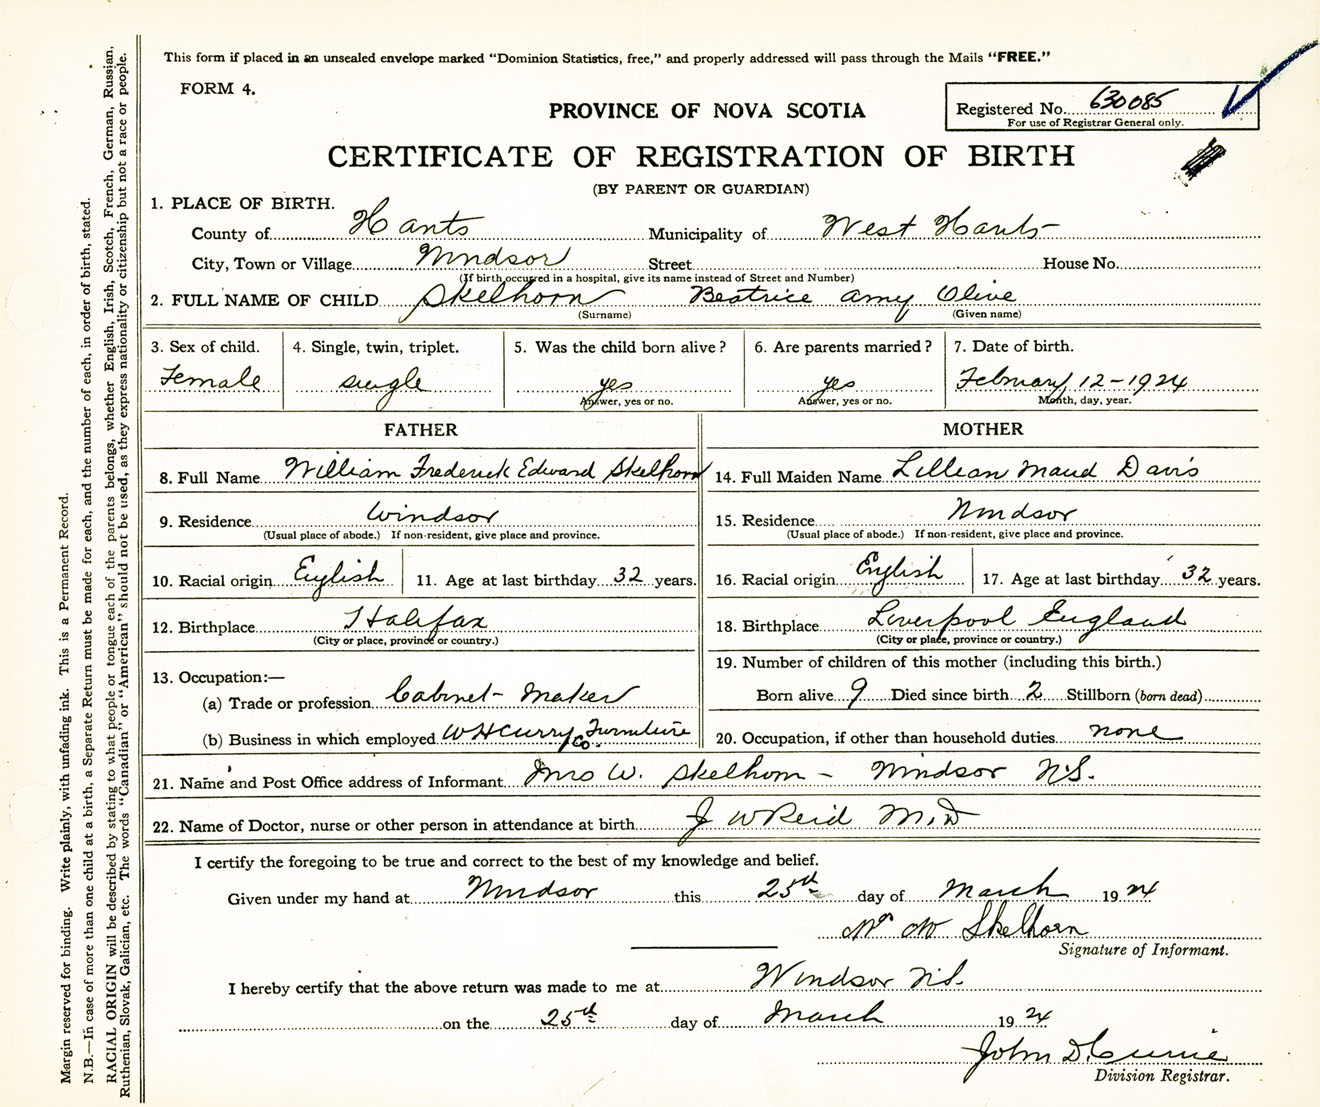 This form if placed in an unsealed envelope marked "Dominion Statistics, free," and properly addressed will pass through the Mails "FREE."
FORM 4.
PROVINCE OF NOVA SCOTIA
Registered No. 630085
For use of Registrar General only.
CERTIFICATE OF REGISTRATION OF BIRTH
(BY PARENT OR GUARDIAN)
1. PLACE OF BIRTH.
County of Hants Municipality of West Hants
City, Town or Village Windsor Street House No.
(If birth occurred in a hospital, give its name instead of Street and Number)
2. FULL NAME OF CHILD Skelhorn Beatrice Amy Olive
(Surname) (Given name)
3. Sex of child. 4. Single, twin, triplet. 5. Was the child born alive? 6. Are parents married? 7. Date of birth.
Female single yes yes February 12-1924
Answer, yes or no. Answer, yes or no. Month, day, year.
FATHER MOTHER
8. Full Name William Frederick Edward Skelhorn 14. Full Maiden Name Lillian Maud Davis
9. Residence Windsor 15. Residence Windsor
(Usual place of abode.) If non-resident, give place and province. (Usual place of abode.) If non-resident, give place and province.
10. Racial origin English 11. Age at last birthday 32 years. 16. Racial origin English 17. Age at last birthday 32 years.
12. Birthplace Halifax 18. Birthplace Liverpool England
(City or place, province or country.) (City or place, province or country.)
19. Number of children of this mother (including this birth.)
13. Occupation:—
(a) Trade or profession Cabinet-Maker Born alive 9 Died since birth 2 Stillborn (born dead)
(b) Business in which employed W H Curry Furniture Co. 20. Occupation, if other than household duties none
21. Name and Post Office address of Informant Mrs W. Skelhorn - Windsor N.S.
22. Name of Doctor, nurse or other person in attendance at birth J W Reid M.D
I certify the foregoing to be true and correct to the best of my knowledge and belief.
Given under my hand at Windsor this 25th day of March 1924
Mrs W Skelhorn
Signature of Informant.
I hereby certify that the above return was made to me at Windsor N.S.
on the 25th day of March 1924
John D. Currie
Division Registrar.
Margin reserved for binding. Write plainly, with unfading ink. This is a Permanent Record.
N.B.—In case of more than one child at a birth, a Separate Return must be made for each, and the number of each, in order of birth, stated.
RACIAL ORIGIN will be described by stating to what people or tongue each of the parents belongs, whether English, Irish, Scotch, French, German, Russian,
Ruthenian, Slovak, Galician, etc. The words "Canadian" or "American" should not be used, as they express nationality or citizenship but not a race or people.